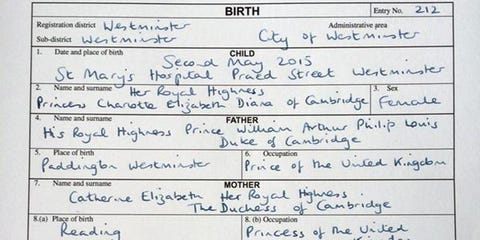 BIRTH Entry No. 212
Registration district Westminster Administrative area
Sub-district Westminster City of Westminster
1. Date and place of birth CHILD
Second May 2015
St Mary's Hospital Praed Street Westminster
2. Name and surname Her Royal Highness 3. Sex
Princess Charlotte Elizabeth Diana of Cambridge Female
4. Name and surname FATHER
His Royal Highness Prince William Arthur Philip Louis
Duke of Cambridge
5. Place of birth 6. Occupation
Paddington Westminster Prince of the United Kingdom
7. Name and surname MOTHER
Catherine Elizabeth Her Royal Highness
The Duchess of Cambridge
8.(a) Place of birth 8. (b) Occupation
Reading Princess of the United
Kingdom